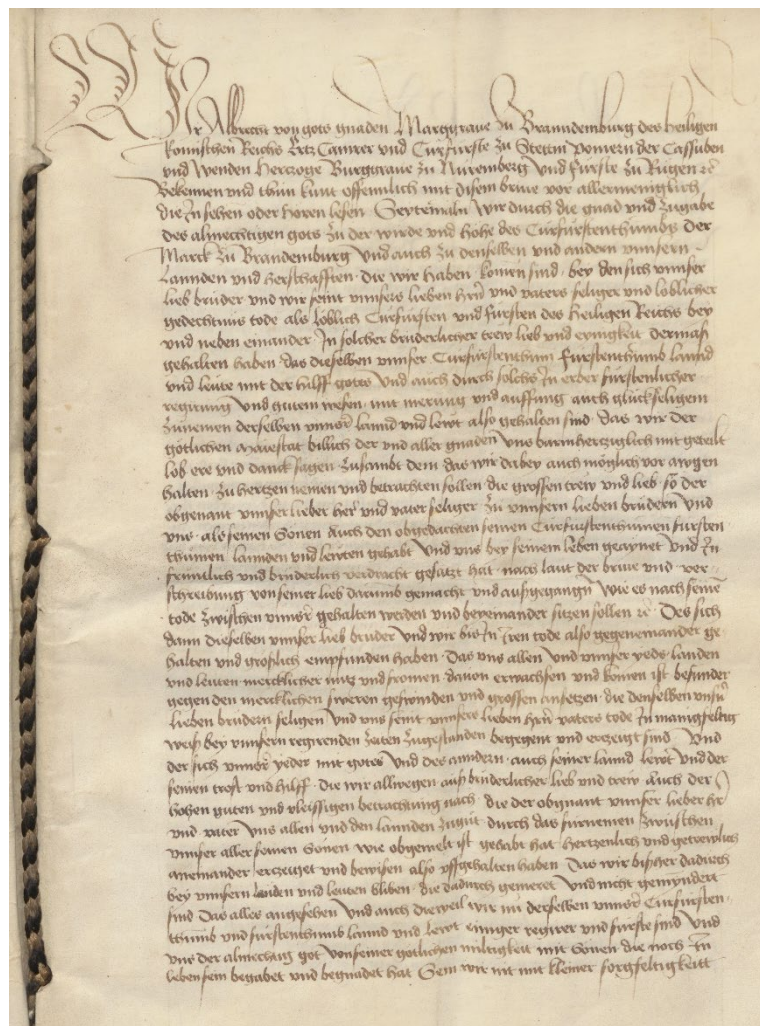 Wir Albrecht von gots gnaden Marggraue zu Branndemburg des heiligen
Romischen Reichs Ertz Camrer und Curfurste zu Stettin Pomern der Cassuben
und Wenden Hertzoge Burggraue zu Nuremberg und furste zu Rugen
Bekennen und thun kunt offennlich mit disem briue vor allermeniglich
die In sehen oder horen lesen Seytemaln wir durch die gnad und zugabe
des almechtigen gots zu der wirde und hohe des Curfurstenthumbs der
Marck zu Brandemburg und auch zu denselben und andern unnsern
Lannden und herschafften die wir haben komen sind bey den sich unnser
lieb bruder und wir seint unnsers lieben hern und vaters seliger und loblicher
gedechtnus tode als loblich Curfursten und fursten des heiligen Reichs bey
und neben einander In solcher bruderlicher trew lieb und eynigkeit dermass
gehalten haben das dieselben unnser Curfurstenthum furstenthumb lannd
und leute mit der hilff gotes und auch durch solchs In erber furstenlicher
regirung und gutem wesen mit merung und auffung auch gluckseligem
zunemen derselben unnser lannd und lewt also gehalten sind das wir der
gotlichen Maiestat billich der und aller gnaden uns barmhertziglich mit geteilt
lob ere und danck sagen zusambt dem das wir dabey auch moglich vor awgen
halten zu hertzen nemen und betrachten sollen die grossen trew und lieb so der
obgenant unnser lieber her und vater seliger zu unnsern lieben brudern und
uns als seinen Sonen auch den obgedachten seinen Curfurstenthumen fursten
thumen lannden und lewten gehabt und uns bey seinem leben geaynet und In
freuntlich und bruderlich gesatzt hat nach laut der briue und ver
schreibung von seiner lieb darumb gemacht und aussgegangen wie es nach seinem
tode zwischen unnser gehalten werden und beyeinander sitzen sollen Des sich
dann dieselben unnser lieb bruder und wir bis In Iren tode also gegeneinander ge
halten und groslich empfunden haben Das uns allen und unnser yeds landen
und leuten mercklicher nutz und fromen dauon erwachsen und komen ist besunder
gegen den mercklichen sweren geswinden und grossen ansetzen die denselben unnsern
lieben brudern seligen und uns seint unnsers lieben hern vaters tode In manigfeltig
weiss bey unnsern regirenden zeiten zugestanden begegent und erzeigt sind Und
der sich unnser yeder mit gotes und des anndern auch seiner lannd lewt und der
seinen trost und hilff die wir allwegen auss bruderlicher lieb und trew auch der
hohen guten und vleissigen betrachtung nach die der obgnant unnser lieber her
und vater uns allen und den lannden zugut durch das furnemen zwuschen
unnser aller seinen Sonen wie obgemelt ist gehabt hat hertzenlich und getrewlich
aneinander erzeiget und bewisen also uffgehalten haben Das wir bissher dadurch
bey unnsern landen und leuten bliben die dadurch gemeret und nicht gemyndert
sind Das alles angesehen und auch dieweil wir nu derselben unnser Curfursten
thumb und furstenthumb lannd und lewt einiger regirer und furste sind Und
uns der almechtig got von seiner gotlichen miltigkeit mit Sonen die noch In
leben sein begabet und begnadet hat Sein wir nit mit kleiner sorgfeltigkeitt